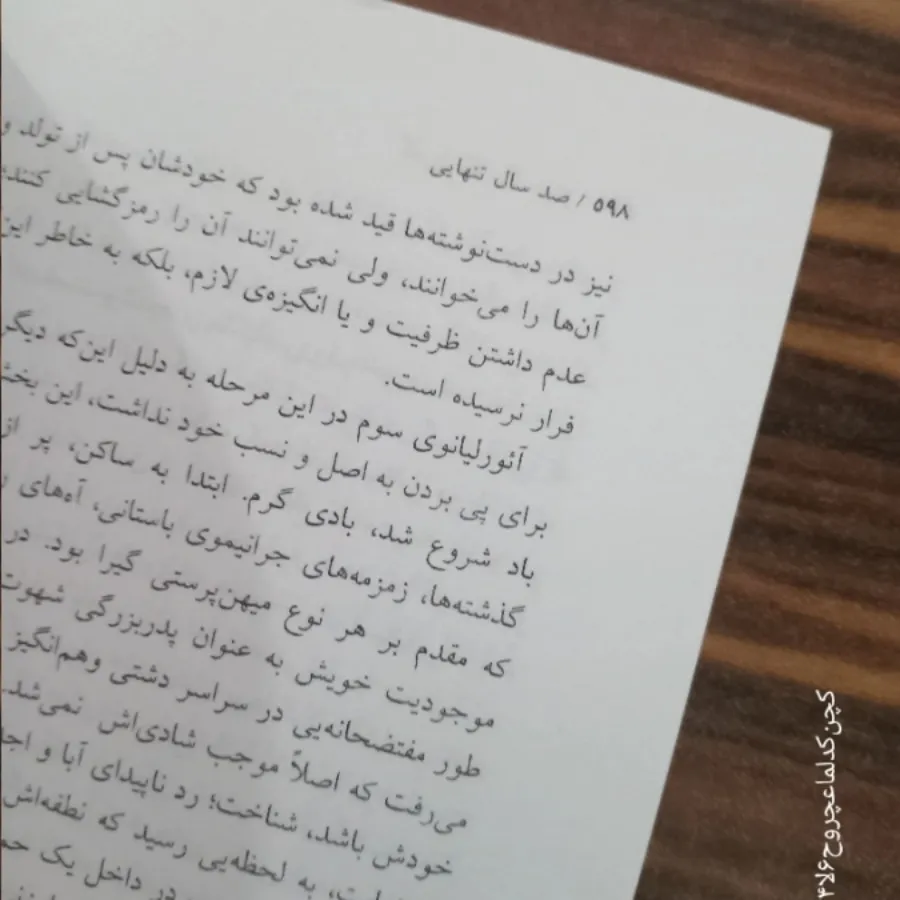 ۵۹۸ / صد سال تنهایی
نیز در دست‌نوشته‌ها قید شده بود که خودشان پس از تولد و
آن‌ها را می‌خوانند، ولی نمی‌توانند آن را رمزگشایی کنند؛
عدم داشتن ظرفیت و یا انگیزه‌ی لازم، بلکه به خاطر این
فرار نرسیده است.
آئورلیانوی سوم در این مرحله به دلیل این‌که دیگر
برای پی بردن به اصل و نسب خود نداشت، این بخش
باد شروع شد، بادی گرم. ابتدا به ساکن، پر از
گذشته‌ها، زمزمه‌های جرانیموی باستانی، آه‌های
که مقدم بر هر نوع میهن‌پرستی گیرا بود. در
موجودیت خویش به عنوان پدربزرگی شهوت
طور مفتضحانه‌یی در سراسر دشتی وهم‌انگیز
می‌رفت که اصلاً موجب شادی‌اش نمی‌شد.
خودش باشد، شناخت؛ رد ناپیدای آبا و اجد
به لحظه‌یی رسید که نطفه‌اش
در داخل یک
کچن‌کدلماعچروح۶لا۴